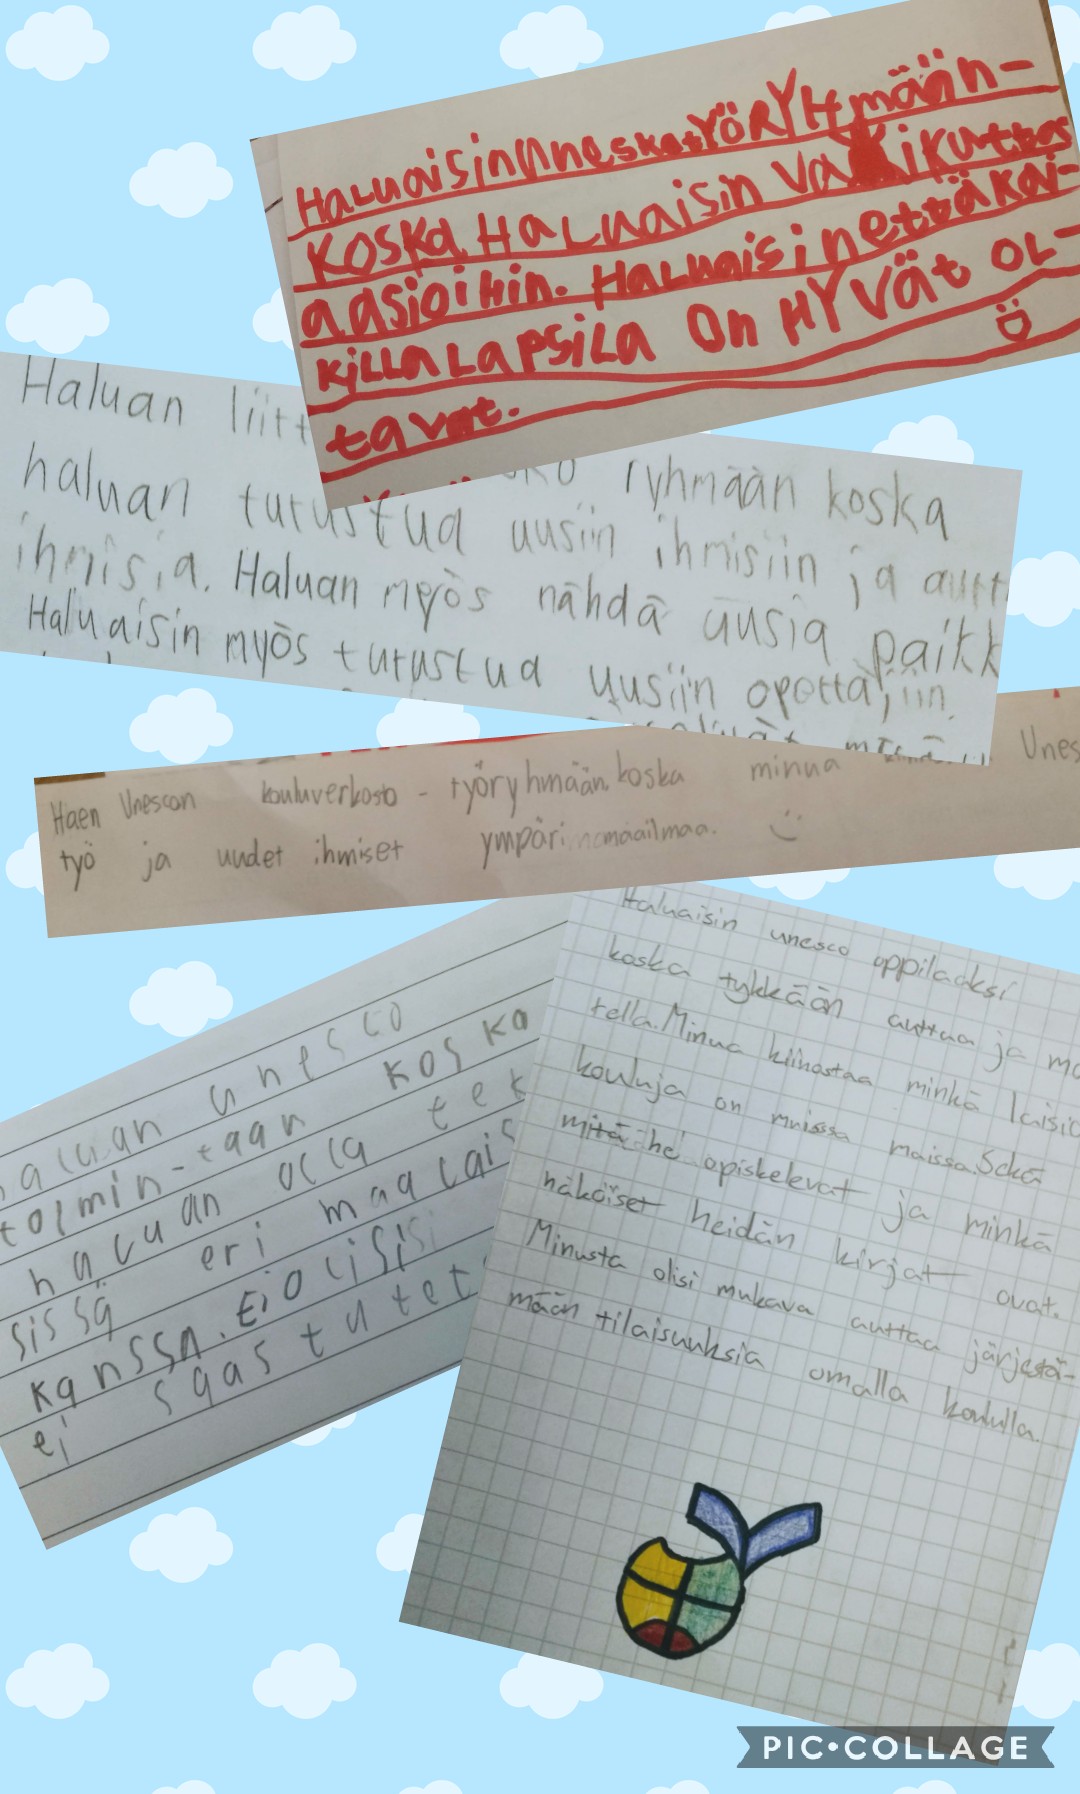 HaLuaisinUneskatYÖRYHmään-
KOSKA HaLuaisin vaikuttaa
aasioihin. HaLuaisinettäKai-
KiLLaLaPSiLa On HYvät OL-
tavat.
Haluan liitt ryhmään koska
haluan tutustua uusiin ihmisiin ja autt
ihmisia. Haluan myös nähdä uusia paikk
Haluaisin myös tutustua uusiin opettajiin.
Haen Unescon kouluverkosto - työryhmään. koska minua Unes
työ ja uudet ihmiset ympäri maailmaa.
haluan unesco
toimin-taan koska
haluan olla tek
sissä eri maalais
kanssa. Eiolisi
ei saastutet
Haluaisin unesco oppilaaksi
koska tykkään auttaa ja
tella. Minua kiinostaa minkä laisia
kouluja on muissa maissa. Sekä
mitä he opiskelevat ja minkä
näköiset heidän kirjat ovat.
Minusta olisi mukava auttaa järjestä-
mään tilaisuuksia omalla koululla.
PIC•COLLAGE